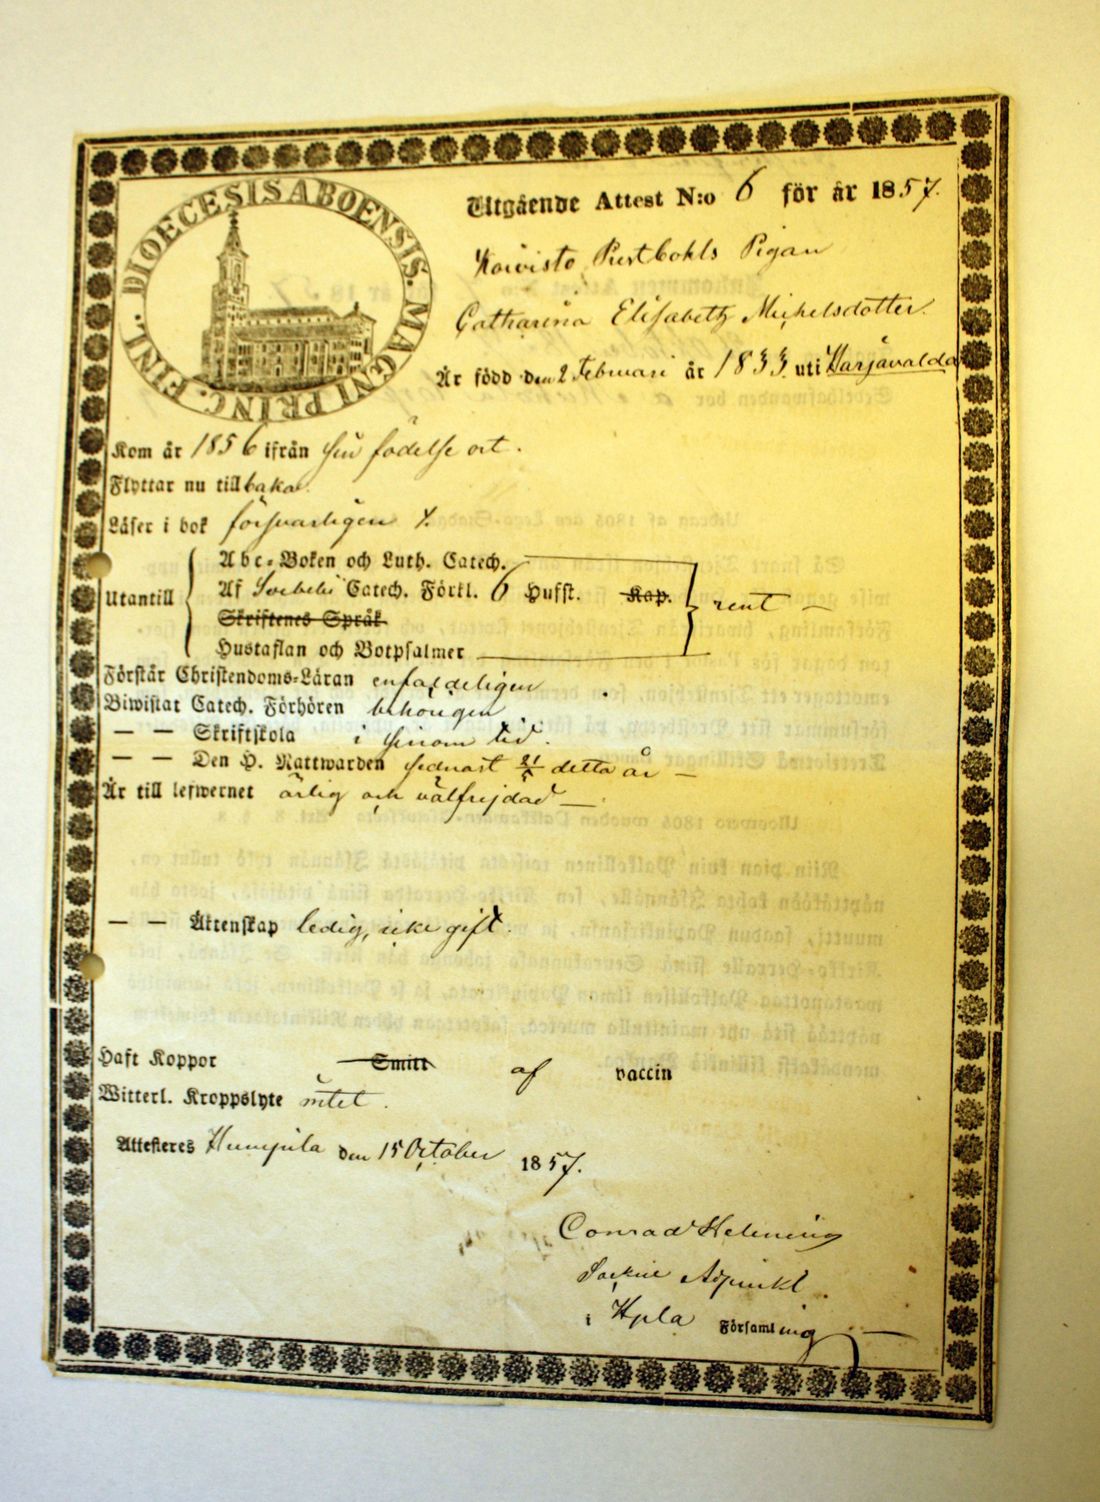 DIOECESIS ABOENSIS. MAGNI PRINC. FINL.
Utgående Attest N:o 6 för år 1857.
Koivisto Pigan
Catharina Elisabeth Michelsdotter.
Är född den 2 Februari år 1833. uti Harjavalda
Kom år 1856 ifrån sin födelse ort.
Flyttar nu tillbaka.
Läser i bok försvarligen
Utantill
Abc-Boken och Luth. Catech.
Af Svebelii Catech. Förkl. 6 Hufst. Kap.
rent —
Skriftenes Språk
Hustaflan och Botpsalmer
Förstår Christendoms-Läran enfaldeligen
Biwistat Catech. Förhören behörigen
— — Skriftskola i sinom tid.
— — Den H. Nattwarden sednast detta år —
Är till lefwernet ärlig och välfrejdad —
— — Äktenskap ledig, icke gift.
Haft Koppor Smitt af vaccin
Witterl. Kroppslyte intet.
Attesteres Humpila den 15 October 1857.
Conrad Helenius
Adjunkt.
i Hpla Församling